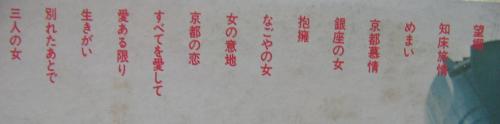 望郷
知床旅情
めまい
京都慕情
銀座の女
抱擁
なごやの女
女の意地
京都の恋
すべてを愛して
愛ある限り
生きがい
別れたあとで
三人の女